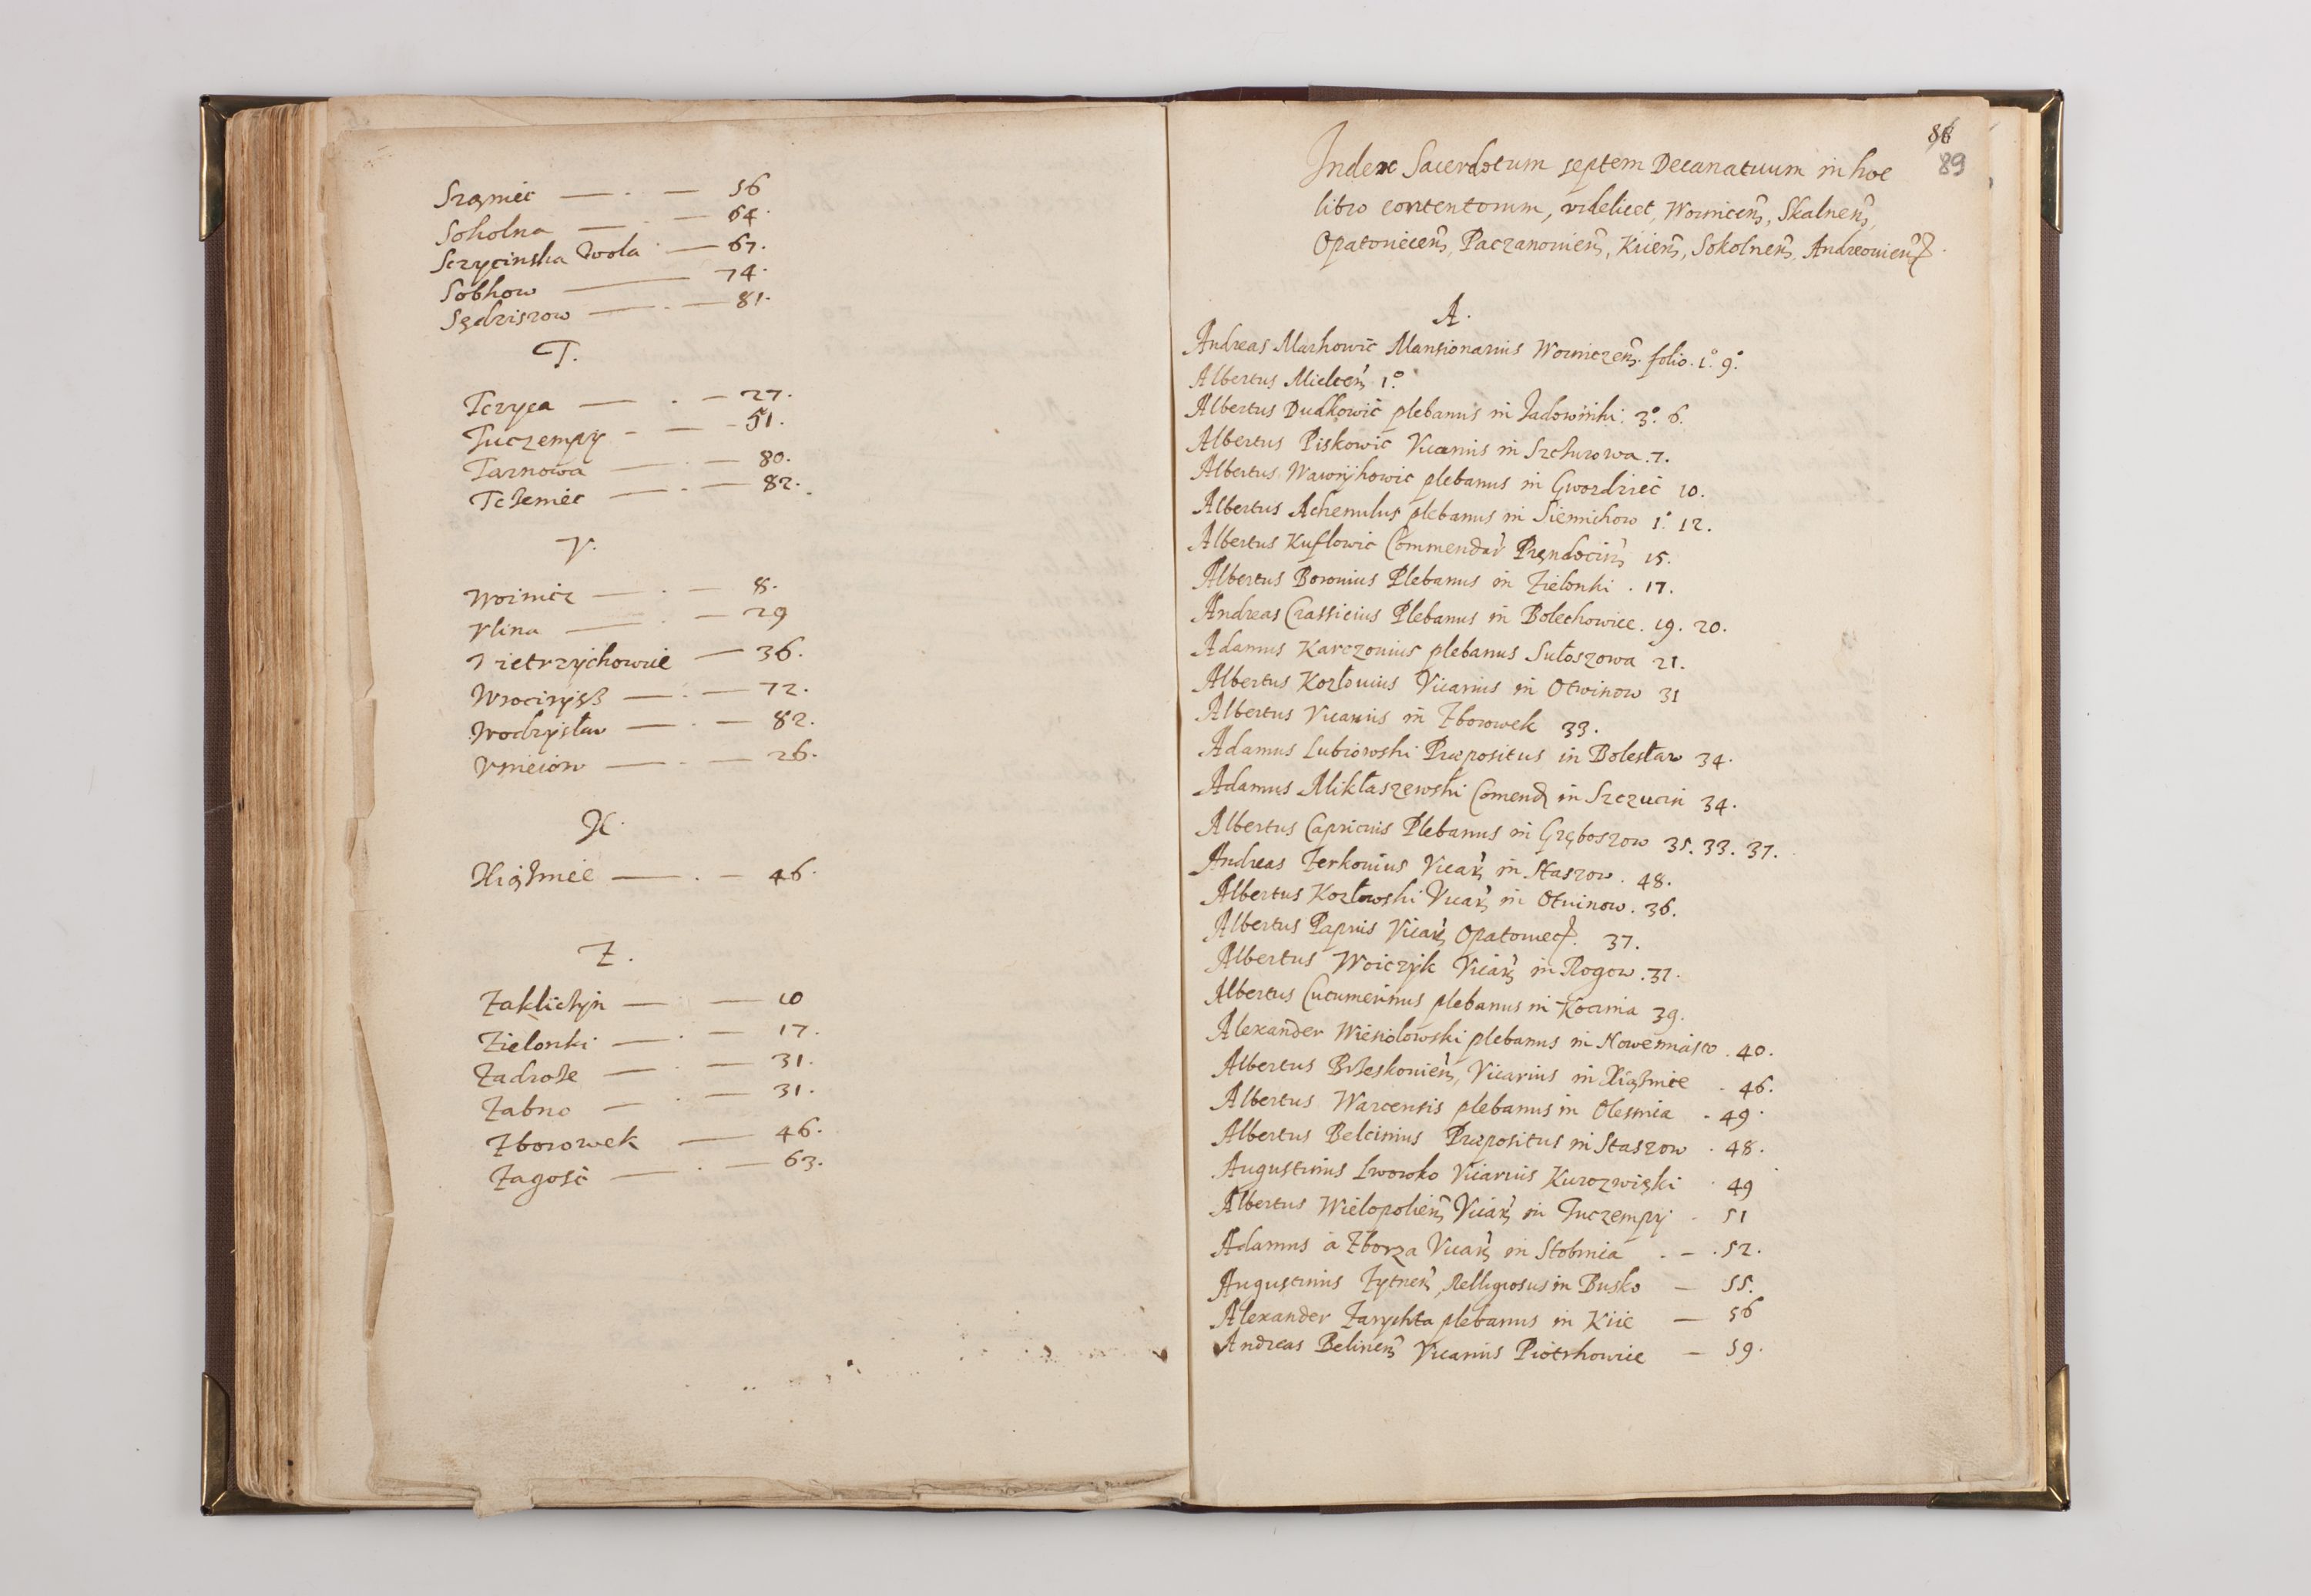 Szaniec — . — 56
Sokolna — . — 64.
Sczycinska Wola . — 67.
Sobkow — 74.
Sędziszow — . — 81.
T.
Tczyca — . — 27.
Tuczempy - — - 51.
Tarnowa — . — 80.
Tcżeniec — . — 82.
V.
Woinicz — . — 8.
Vlina — . — 29
Wietrzychowice — 36.
Wrociryż — . — 72.
Wodzysław — . — 82.
Vnieiow — . — 26.
X.
Xiążnice — . — 46.
Z.
Zakliczyn — — 10
Zielonki — . — 17.
Zadroże — . — 31.
Zabno — . — 31.
Zborowek — 46.
Zagość — . — 63.
86
89
Index Sacerdotum septem Decanatuum in hoc
libro contentorum, videlicet, Woinicens, Skalnens,
Opatoviecens, Paczanoviens, Kiiens, Sokolnens, Andreoviens.
A.
Andreas Markowic Mansionarius Woiniczens. folio. 1.° 9.°
Albertus Mielcens 1.°
Albertus Dudkowic plebanus in Jadowniki. 3.° 6.
Albertus Piskowic Vicarius in Szczurowa. 7.
Albertus Wawrzykowic plebanus in Gwozdziec 10.
Albertus Achemulus plebanus in Siemichow 1.° 12.
Albertus Kuflowic Commendar Prendocin 15.
Albertus Boronius Plebanus in Zielonki . 17.
Andreas Crassicius Plebanus in Bolechowice. 19. 20.
Adamus Karczovius plebanus Sułoszowa 21.
Albertus Kozłovius Vicarius in Otwinow 31
Albertus Vicarius in Zborowek 33.
Adamus Lubiowski Præpositus in Bolesław 34.
Adamus Mikłaszewski Comend in Szczucin 34.
Albertus Capricius Plebanus in Gręboszow 35. 33. 37.
Andreas Zerkovius Vicar in Staszow. 48.
Albertus Kozłowski Vicar in Otvinow. 36.
Albertus Papius Vicar Opatoviec. 37.
Albertus Woiczyk Vicar in Rogow. 37.
Albertus Cucumerinus plebanus in Kocina 39.
Alexander Wieniolowski plebanus in Nowemiasto. 40.
Albertus Brzeskoviens, Vicarius in Xiążnice . 46.
Albertus Warcensis plebanus in Olesnia . 49.
Albertus Belcinius Præpositus in Staszow . 48.
Augustinus Lwowko Vicarius Kurozwięki . 49
Albertus Wielopoliens Vicar in Tuczempy . 51
Adamus à Zborza Vicar in Stobnia . — . 52.
Augustinus Zytnens, Relligiosus in Busko — 55.
Alexander Zarychta plebanus in Kiie — 56
Andreas Belinens Vicarius Piotrkowice — 59.